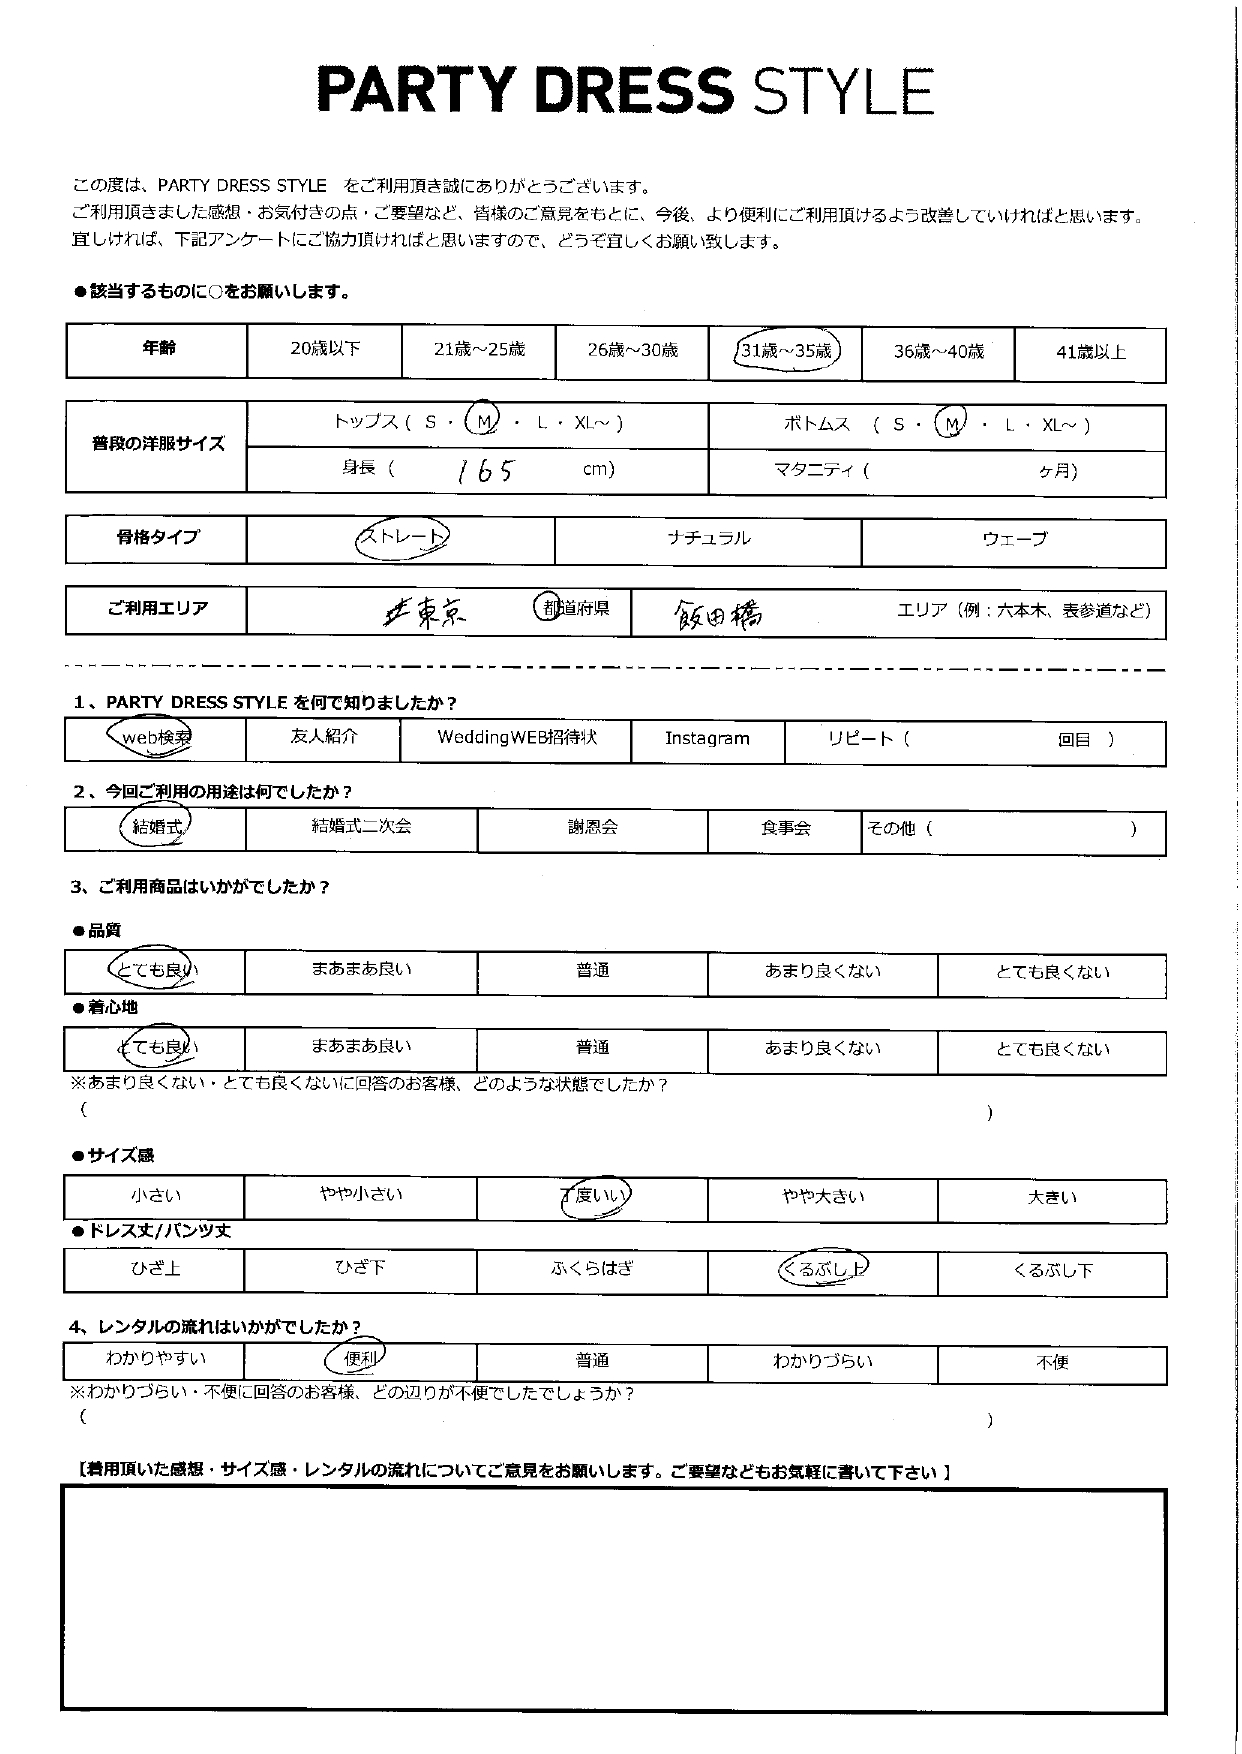 PARTY DRESS STYLE
この度は、PARTY DRESS STYLE をご利用頂き誠にありがとうございます。
ご利用頂きました感想・お気付きの点・ご要望など、皆様のご意見をもとに、今後、より便利にご利用頂けるよう改善していければと思います。
宜しければ、下記アンケートにご協力頂ければと思いますので、どうぞ宜しくお願い致します。
●該当するものに○をお願いします。
年齢 20歳以下 21歳～25歳 26歳～30歳 31歳～35歳 36歳～40歳 41歳以上
普段の洋服サイズ トップス ( S ・ M ・ L ・ XL～ ) ボトムス ( S ・ M ・ L ・ XL～ )
身長 ( 165 cm) マタニティ ( ヶ月)
骨格タイプ ストレート ナチュラル ウェーブ
ご利用エリア 東京 都道府県 飯田橋 エリア（例：六本木、表参道など）
1、PARTY DRESS STYLE を何で知りましたか？
web検索 友人紹介 WeddingWEB招待状 Instagram リピート ( 回目 )
2、今回ご利用の用途は何でしたか？
結婚式 結婚式二次会 謝恩会 食事会 その他 ( )
3、ご利用商品はいかがでしたか？
●品質
とても良い まあまあ良い 普通 あまり良くない とても良くない
●着心地
とても良い まあまあ良い 普通 あまり良くない とても良くない
※あまり良くない・とても良くないに回答のお客様、どのような状態でしたか？
( )
●サイズ感
小さい やや小さい 丁度いい やや大きい 大きい
●ドレス丈/パンツ丈
ひざ上 ひざ下 ふくらはぎ くるぶし上 くるぶし下
4、レンタルの流れはいかがでしたか？
わかりやすい 便利 普通 わかりづらい 不便
※わかりづらい・不便に回答のお客様、どの辺りが不便でしたでしょうか？
( )
【着用頂いた感想・サイズ感・レンタルの流れについてご意見をお願いします。ご要望などもお気軽に書いて下さい 】